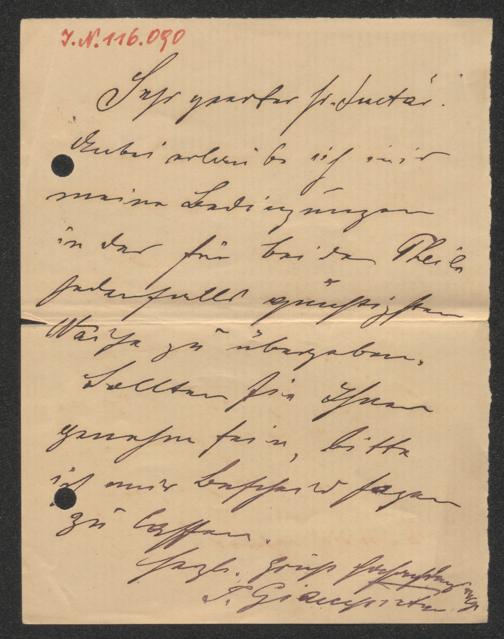 J.N. 116.090
Sehr geerter Hr. Doctor!
Anbei erlaube ich mir
meine Bedingungen
in der für beide Theile
jedenfalls günstigsten
Weise zu übergeben.
Sollten Sie Ihnen
genehm sein, bitte
ich mir Bescheid sagen
zu lassen.
Herzl. Grüße